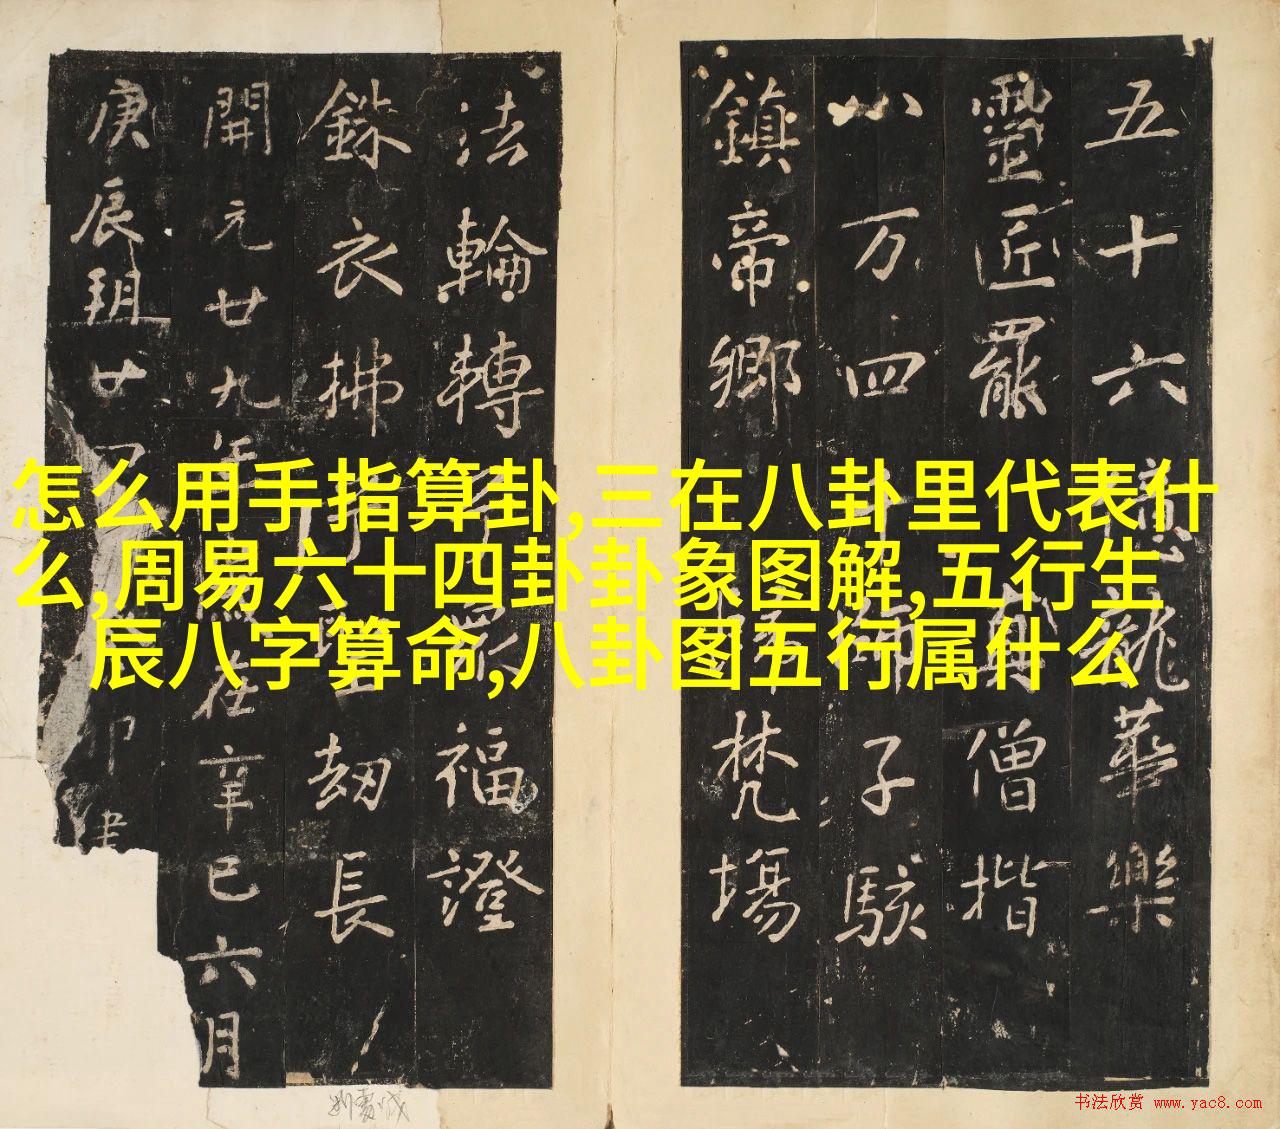 怎么用手指算卦,三在八卦里代表什
么,周易六十四卦卦象图解,五行生
辰八字算命,八卦图五行属什么
五十六龍華樂
靈匠罷僧揩
八万四子駭
鎮帝鄉梵場
法輪轉福證
銖衣拂劫長
開元廿九年在辛巳六月
庚辰朔廿四卯建
书法欣赏 www.yac8.com